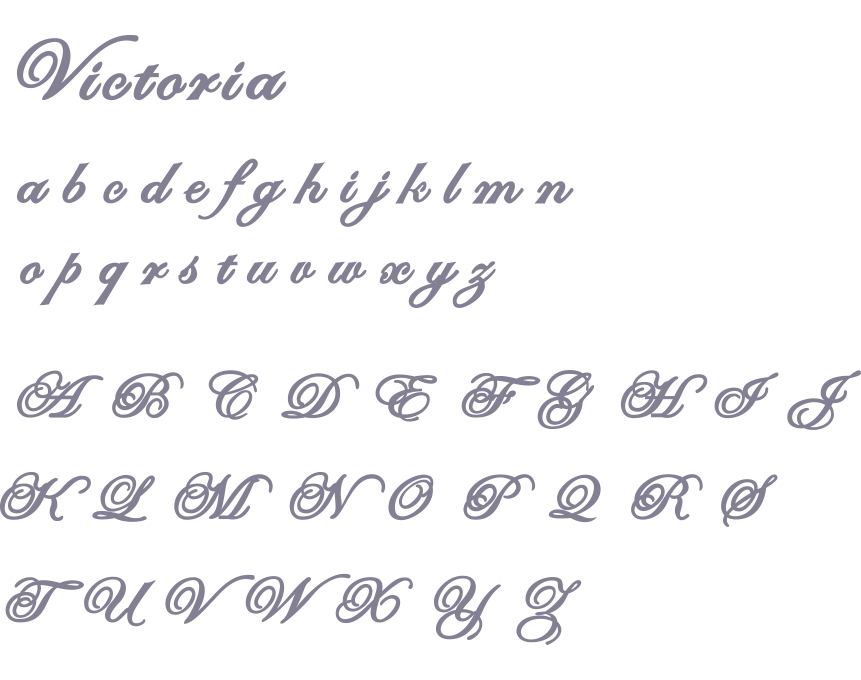 Victoria
a b c d e f g h i j k l m n
o p q r s t u v w x y z
A B C D E F G H I J
K L M N O P Q R S
T U V W X Y Z